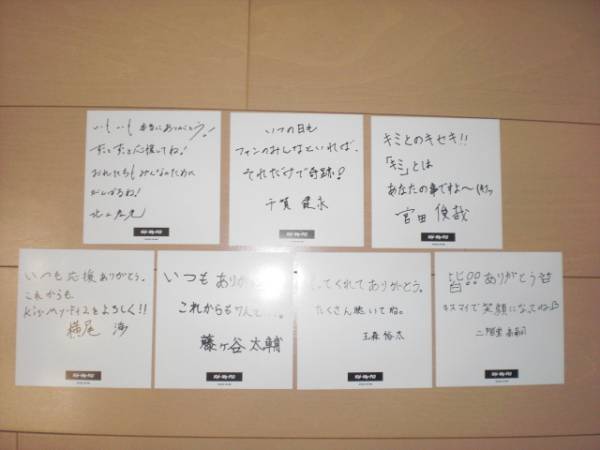 いつもいつも本当にありがとう!
ずっとずっと応援してね!
おれたちもみんなのために
がんばるね!
北山宏光
いつの日も
ファンのみんなといれば、
それだけで奇跡!
千賀 健永
キミとのキセキ!!
「キミ」とは
あなたの事ですよ〜
宮田 俊哉
いつも応援ありがとう。
これからも
Kis-My-Ft2をよろしく!!
横尾 渉
いつもありが
これからも
藤ヶ谷 太輔
してくれてありがとう。
たくさん聴いてね。
玉森 裕太
皆!!ありがとう皆
キスマイで笑顔になってね
二階堂高嗣